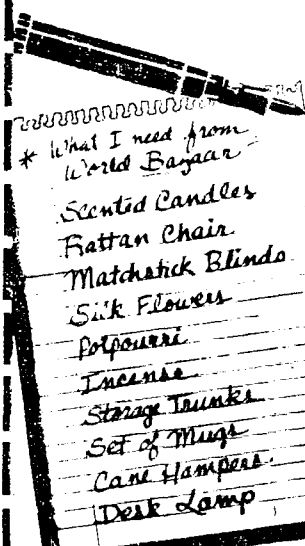 * What I need from
World Bazaar
Scented Candles
Rattan Chair
Matchstick Blinds
Silk Flowers
Potpourri
Incense
Storage Trunks
Set of Mugs
Cane Hampers
Desk Lamp